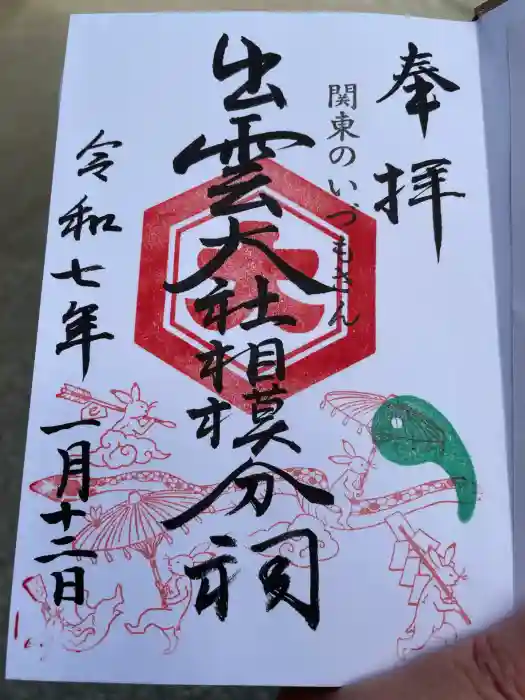 奉拝
関東のいづもさん
出雲大社相模分祠
令和七年一月十二日